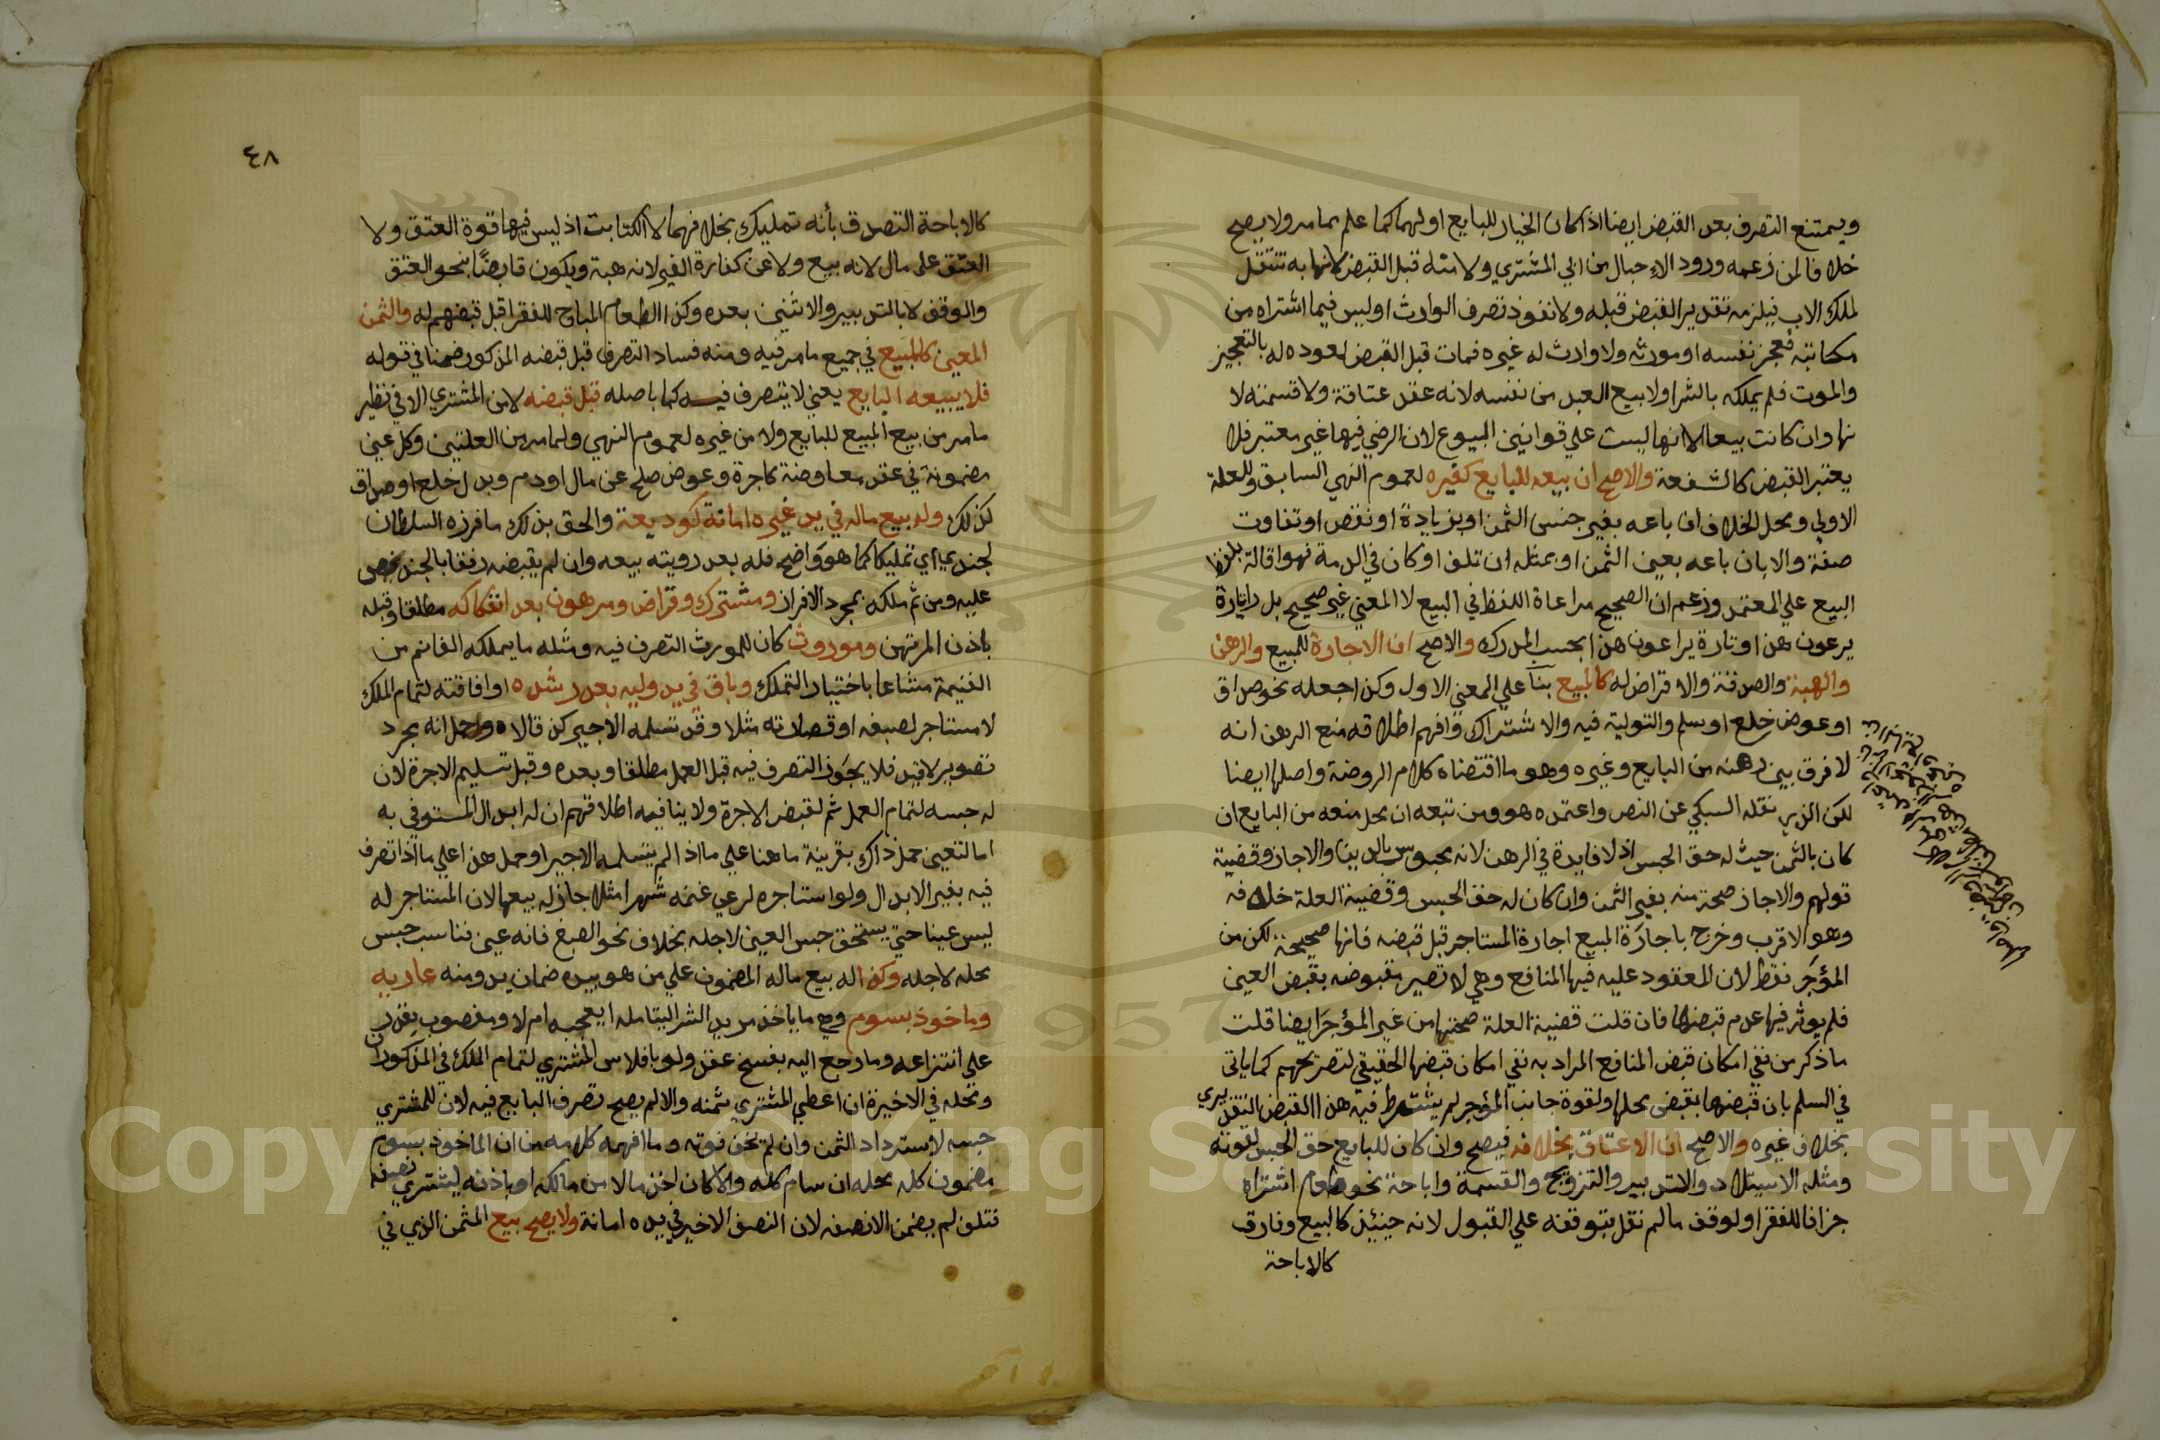 ويمتنع التصرف بعد القبض ايضا اذا كان الخيار للبايع او لهما كما علم مما مر ولا يصح
خلافا لمن زعمه ورود الاحبال من ابي المشتري ولا مثله قبل القبض لانها به تنتقل
لملك الاب فيلزمه تقدير القبض قبله ولا نفوذ تصرف الوارث او ليس فيما اشتراه من
مكاتبه فعجز نفسه او مورثه ولا وارث له غيره فمات قبل القبض لعوده له بالتعجيز
والموت فلم يملكه بالشرا ولا بيع العبد من نفسه لانه عقد عتاقة ولا قسمته لا
نها وان كانت بيعا الا انها ليست علي قوانين البيوع لان الرضي فيها غير معتبر فلا
يعتبر القبض كالشفعة والاصح ان بيعه للبايع كغيره لعموم النهي السابق وللعلة
الاولي ومحل الخلاف ان باعه بغير جنس الثمن او بزيادة او نقص او تفاوت
صفة والا بان باعه بعين الثمن او بمثله ان تلف او كان في الذمة فهو اقالة بلفظ
البيع علي المعتمد وزعم ان الصحيح مراعاة اللفظ في البيع لا المعني غير صحيح بل تارة
يرعون هذا وتارة يراعون هذا بحسب المدرك والاصح ان الاجارة للمبيع والرهن
والهبة والصدقة والاقراض له كالبيع بنا علي المعني الاول وكذا جعله نحو صداق
او عوض خلع او سلم والتولية فيه والاشتراك وافهم اطلاقه منع الرهن انه
لا فرق بين رهنه من البايع وغيره وهو ما اقتضاه كلام الروضة واصلها ايضا
لكن الذي نقله السبكي عن النص واعتمده هو ومن تبعه ان محل منعه من البايع ان
كان بالثمن حيث له حق الحبس اذ لا فايدة في الرهن لانه محبوس بالدين والا جاز وقضية
قولهم والا جاز صحته منه بغير الثمن وان كان له حق الحبس وقضية العلة خلافه
وهو الاقرب وخرج باجارة المبيع اجارة المستاجر قبل قبضه فانها صحيحة لكن من
المؤجر فقط لان المعقود عليه فيها المنافع وهي لا تصير مقبوضه بقبض العين
فلم يوثر فيها عدم قبضها فان قلت قضية العلة صحتها من غير المؤجر ايضا قلت
ما ذكر من نفي امكان قبض المنافع المراد به نفي امكان قبضها الحقيقي لتصريحهم كما ياتي
في السلم بان قبضها بقبض محلها ولقوة جانب المؤجر لم يشترط فيه هذا القبض التقديري
بخلاف غيره والاصح ان الاعتاق بخلافه فيصح وان كان للبايع حق الحبس لقوته
ومثله الاستيلاد والتدبير والتزويج والقسمة واباحة نحو طعام اشتراه
جزافا للفقرا ولوقف ما لم نقل بتوقفه علي القبول لانه حينئذ كالبيع وفارق
كالاباحة
٤٨
كالاباحة التصدق بأنه تمليك بخلافهما لا الكتابت اذ ليس فيها قوة العتق ولا
العتق على مال لانه بيع ولا عن كفارة الغير لانه هبة ويكون قابضا بنحو العتق
والوقف لا بالتدبير والاثنين بعده وكذا الطعام المباح للفقرا قبل قبضهم له والثمن
المعين كالمبيع في جميع ما مر فيه ومنه فساد التصرف قبل قبضه المذكور ضمنا في قوله
فلا يبيعه البايع يعني لا يتصرف فيه كما باصله قبل قبضه لا من المشتري الا في نظير
ما مر من بيع المبيع للبايع ولا من غيره لعموم النهي ولما مر من العلتين وكل عين
مضمونة في عقد معاوضة كاجرة وعوض صلح عن مال او دم وبدل خلع او صداق
كذلك وله بيع ماله في يد غيره امانة كوديعة والحق بذلك ما فرزه السلطان
لجندي اي تمليكا كما هو واضح فله بعد رويته بيعه وان لم يقبضه رفقا بالجند نص
عليه ومن ثم ملكه بمجرد الافراز ومشترك وقراض ومرهون بعد انفكاكه مطلقا وقبله
باذن المرتهن وموروث كان للمورث التصرف فيه ومثله ما يملكه الغانم من
الغنيمة مشاعا باختيار التملك وباق في يد وليه بعد رشده او افاقته لتمام الملك
لا مستاجر لصبغه او قصارته مثلا وقد تسلمه الاجير كذا قالاه انه مجرد
تصوير لا قيد فلا يجوز التصرف فيه قبل العمل مطلقا وبعده وقبل تسليم الاجرة لان
له حبسه لتمام العمل ثم لقبض الاجرة ولا ينافيه اطلاقهم ان له ابدال المستوفي به
اما لتعين حمل ذاك بقرينة ما هنا علي ما اذا لم يتسلمه الاجير او حمل هذا علي ما اذا تصرف
فيه بغير الابدال ولو استاجره لرعي غنمه شهرا مثلا جاز له بيعها لان المستاجر له
ليس عينا حتي يستحق حبس العين لاجله بخلاف نحو الصبغ فانه عين فناسب حبس
محله لاجله وكذا له بيع ماله المضمون علي من هو بيده ضمان يد ومنه عاريه
وماخوذ بسوم وهو ما ياخذه مريد الشرا ليتامله ايعجبه ام لا ومغصوب يقدر
على انتزاعه وما رجع اليه بفسخ عقد ولو بافلاس المشتري لتمام الملك في المذكورات
ومحله في الاخيرة ان اعطي المشتري ثمنه والا لم يصح تصرف البايع فيه لان للمشتري
حبسه لاسترداد الثمن وان لم تخف فوته وما افهمه كلامه من ان الماخوذ بسوم
مضمون كله محله ان سام كله والا كان اخذ مالا من مالكه او باذنه ليشتري نصفه
فتلف لم يضمن الا نصفه لان النصف الاخير في يده امانة ولا يصح بيع المثمن الذي في